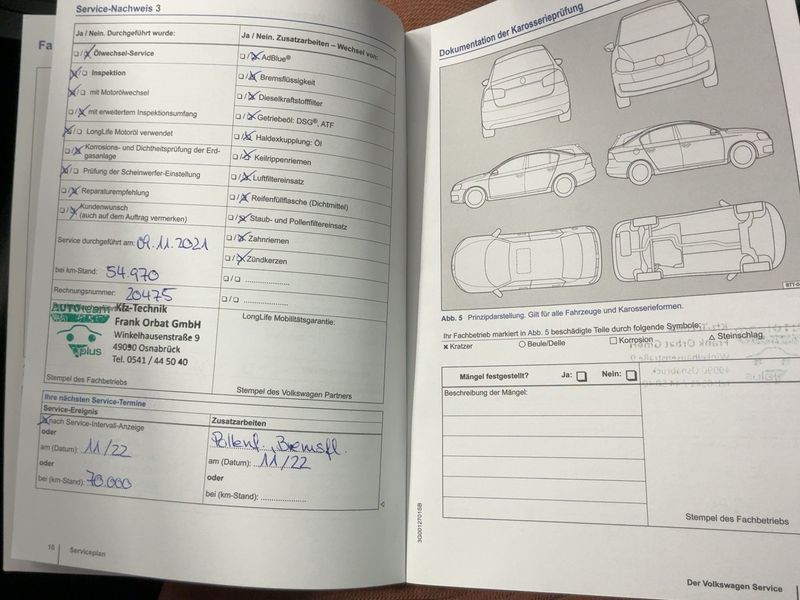 Service-Nachweis 3
Ja / Nein. Durchgeführt wurde:
❑ / ☒ Ölwechsel-Service
☒ / ❑ Inspektion
☒ / ❑ mit Motorölwechsel
❑ / ☒ mit erweitertem Inspektionsumfang
☒ / ❑ LongLife Motoröl verwendet
❑ / ☒ Korrosions- und Dichtheitsprüfung der Erd-
gasanlage
☒ / ❑ Prüfung der Scheinwerfer-Einstellung
❑ / ☒ Reparaturempfehlung
❑ / ☒ Kundenwunsch
(auch auf dem Auftrag vermerken)
Service durchgeführt am: 09.11.2021
bei km-Stand: 54.970
Rechnungsnummer: 20475
AUTO team
plus
Kfz-Technik
Frank Orbat GmbH
Winkelhausenstraße 9
49090 Osnabrück
Tel. 0541 / 44 50 40
Stempel des Fachbetriebs
Ja / Nein. Zusatzarbeiten – Wechsel von:
❑ / ☒ AdBlue®
❑ / ☒ Bremsflüssigkeit
❑ / ☒ Dieselkraftstofffilter
❑ / ☒ Getriebeöl: DSG®, ATF
❑ / ☒ Haldexkupplung: Öl
❑ / ☒ Keilrippenriemen
❑ / ☒ Luftfiltereinsatz
❑ / ☒ Reifenfüllflasche (Dichtmittel)
❑ / ☒ Staub- und Pollenfiltereinsatz
❑ / ☒ Zahnriemen
❑ / ☒ Zündkerzen
❑ / ❑ ....................
❑ / ❑ ....................
LongLife Mobilitätsgarantie:
Stempel des Volkswagen Partners
Ihre nächsten Service-Termine
Service-Ereignis
☒ nach Service-Intervall-Anzeige
oder
am (Datum): 11/22
oder
bei (km-Stand): 70.000
Zusatzarbeiten
Pollenf., Bremsfl.
am (Datum): 11/22
oder
bei (km-Stand): ....................
10 Serviceplan
Fa
Dokumentation der Karosserieprüfung
BTT-0
Abb. 5 Prinzipdarstellung. Gilt für alle Fahrzeuge und Karosserieformen.
Ihr Fachbetrieb markiert in Abb. 5 beschädigte Teile durch folgende Symbole:
× Kratzer ○ Beule/Delle □ Korrosion △ Steinschlag
Mängel festgestellt? Ja: ❑ Nein: ❑
Beschreibung der Mängel:
Stempel des Fachbetriebs
3G0012701SB
Der Volkswagen Service